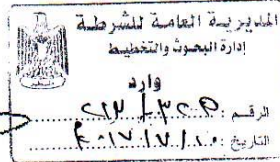 المديرية العامة للشرطة
إدارة البحوث والتخطيط
وارد
الرقم :
التاريخ : ٢٠١٧/٧/١٠